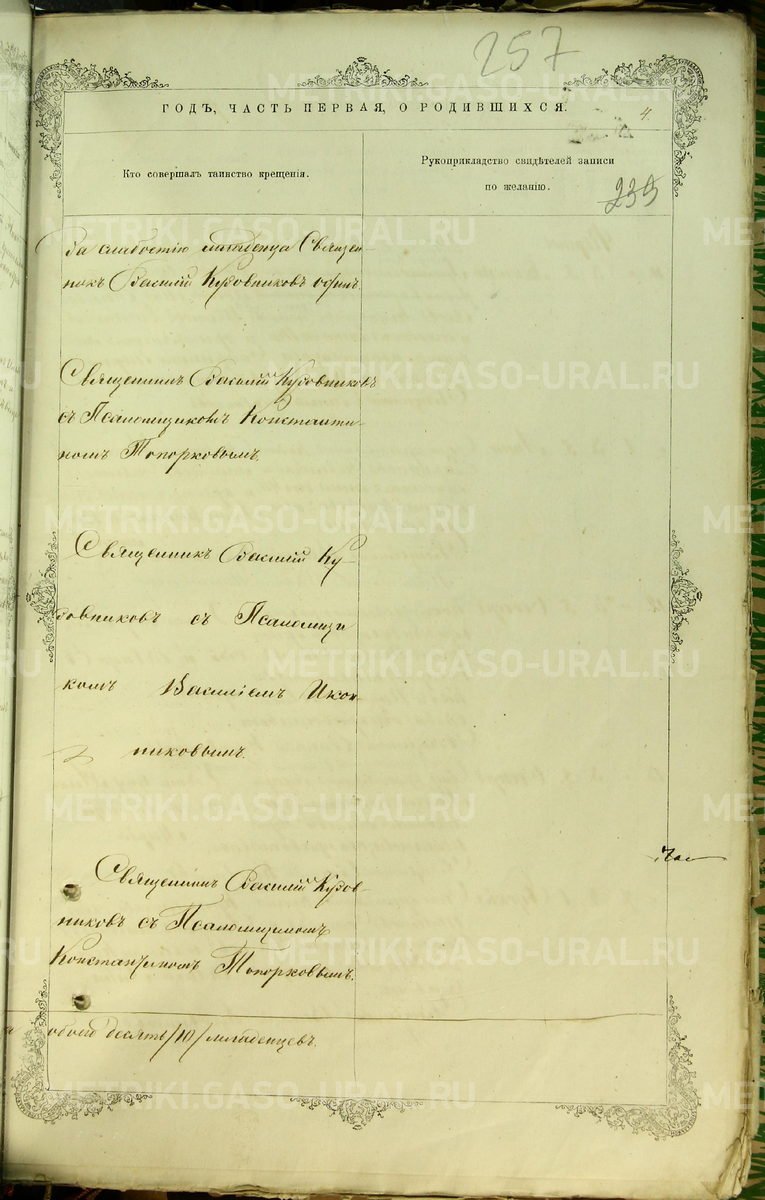 257
ГОДЪ, ЧАСТЬ ПЕРВАЯ, О РОДИВШИХСЯ.
4.
Кто совершалъ таинство крещенія.
Рукоприкладство свидѣтелей записи
по желанію.
239
За слабостію младенца Священ-
никъ Василій Кудовниковъ одинъ.
Священникъ Василій Кудовниковъ
съ Псаломщикомъ Константи-
номъ Топорковымъ.
Священникъ Василій Ку-
довниковъ съ Псаломщи
комъ Василіемъ Икон-
никовымъ.
Священникъ Василій Кудов-
никовъ съ Псаломщикомъ
Константиномъ Топорковымъ.
обоего десять /10/ младенцевъ.
METRIKI.GASO-URAL.RU